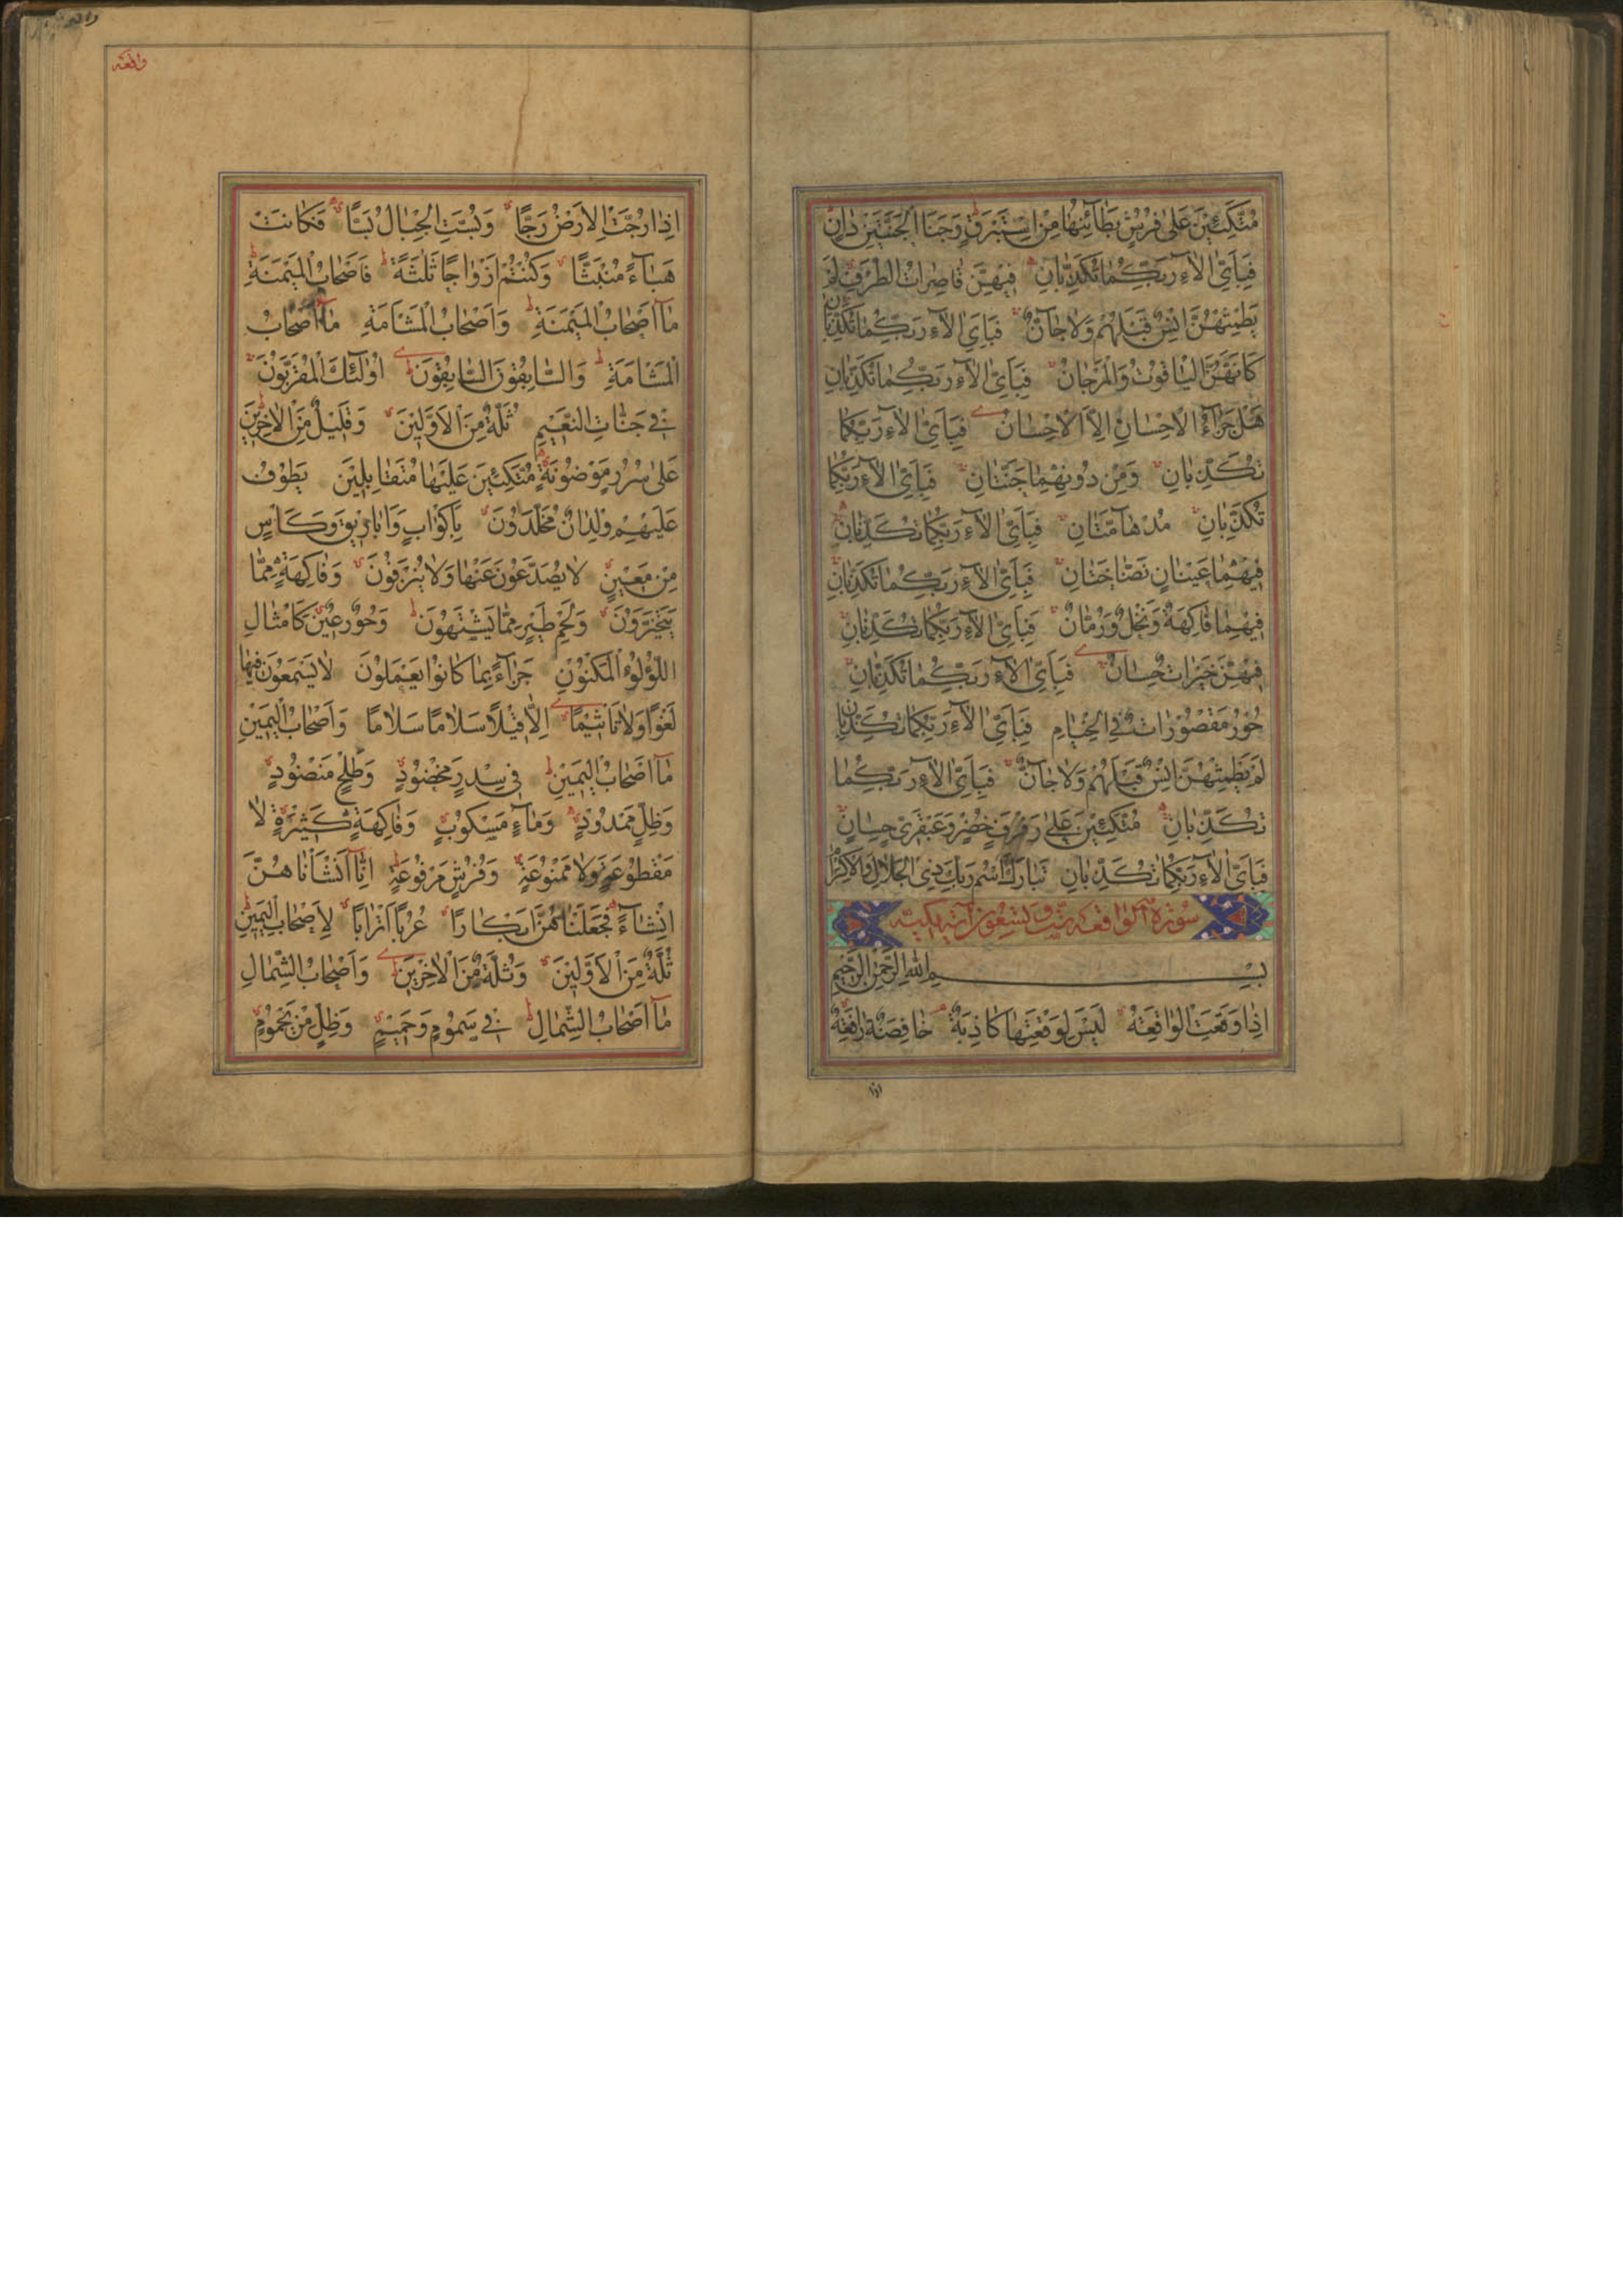 مُتَّكِئِينَ عَلىٰ فُرُشٍ بَطَآئِنُهٰا مِنْ اِسْتَبْرَقٍ وَجَنَا الْجَنَّتَيْنِ دٰانٍ
فَبِاَيِّ اٰلآءِ رَبِّكُمٰا تُكَذِّبٰانِ فِيهِنَّ قٰاصِرٰاتُ الطَّرْفِ لَمْ
يَطْمِثْهُنَّ اِنْسٌ قَبْلَهُمْ وَلاٰ جٰآنٌّ فَبِاَيِّ اٰلآءِ رَبِّكُمٰا تُكَذِّبٰانِ
كَاَنَّهُنَّ الْيٰاقُوتُ وَالْمَرْجٰانُ فَبِاَيِّ اٰلآءِ رَبِّكُمٰا تُكَذِّبٰانِ
هَلْ جَزٰآءُ الْاِحْسٰانِ اِلاَّ الْاِحْسٰانُ فَبِاَيِّ اٰلآءِ رَبِّكُمٰا
تُكَذِّبٰانِ وَمِنْ دُونِهِمٰا جَنَّتٰانِ فَبِاَيِّ اٰلآءِ رَبِّكُمٰا
تُكَذِّبٰانِ مُدْهٰآمَّتٰانِ فَبِاَيِّ اٰلآءِ رَبِّكُمٰا تُكَذِّبٰانِ
فِيهِمٰا عَيْنٰانِ نَضّٰاخَتٰانِ فَبِاَيِّ اٰلآءِ رَبِّكُمٰا تُكَذِّبٰانِ
فِيهِمٰا فٰاكِهَةٌ وَنَخْلٌ وَرُمّٰانٌ فَبِاَيِّ اٰلآءِ رَبِّكُمٰا تُكَذِّبٰانِ
فِيهِنَّ خَيْرٰاتٌ حِسٰانٌ فَبِاَيِّ اٰلآءِ رَبِّكُمٰا تُكَذِّبٰانِ
حُورٌ مَقْصُورٰاتٌ فِي الْخِيٰامِ فَبِاَيِّ اٰلآءِ رَبِّكُمٰا تُكَذِّبٰانِ
لَمْ يَطْمِثْهُنَّ اِنْسٌ قَبْلَهُمْ وَلاٰ جٰآنٌّ فَبِاَيِّ اٰلآءِ رَبِّكُمٰا
تُكَذِّبٰانِ مُتَّكِئِينَ عَلىٰ رَفْرَفٍ خُضْرٍ وَعَبْقَرِيٍّ حِسٰانٍ
فَبِاَيِّ اٰلآءِ رَبِّكُمٰا تُكَذِّبٰانِ تَبٰارَكَ اسْمُ رَبِّكَ ذِي الْجَلاٰلِ وَالْاِكْرٰامِ
سُورَةُ الْوٰاقِعَة سِتّ وَتِسْعُونَ آية مكيّه
بِسْمِ اللهِ الرَّحْمٰنِ الرَّحِيمِ
اِذٰا وَقَعَتِ الْوٰاقِعَةُ لَيْسَ لِوَقْعَتِهٰا كٰاذِبَةٌ خٰافِضَةٌ رٰافِعَةٌ
اذا
واقعه
اِذٰا رُجَّتِ الْاَرْضُ رَجًّا وَبُسَّتِ الْجِبٰالُ بَسًّا فَكٰانَتْ
هَبٰآءً مُنْبَثًّا وَكُنْتُمْ اَزْوٰاجًا ثَلٰثَةً فَاَصْحٰابُ الْمَيْمَنَةِ
مٰآ اَصْحٰابُ الْمَيْمَنَةِ وَاَصْحٰابُ الْمَشْاَمَةِ مٰآ اَصْحٰابُ
الْمَشْاَمَةِ وَالسّٰابِقُونَ السّٰابِقُونَ اُولٰٓئِكَ الْمُقَرَّبُونَ
فِي جَنّٰاتِ النَّعِيمِ ثُلَّةٌ مِنَ الْاَوَّلِينَ وَقَلِيلٌ مِنَ الْاٰخِرِينَ
عَلىٰ سُرُرٍ مَوْضُونَةٍ مُتَّكِئِينَ عَلَيْهٰا مُتَقٰابِلِينَ يَطُوفُ
عَلَيْهِمْ وِلْدٰانٌ مُخَلَّدُونَ بِاَكْوٰابٍ وَاَبٰارِيقَ وَكَاْسٍ
مِنْ مَعِينٍ لاٰ يُصَدَّعُونَ عَنْهٰا وَلاٰ يُنْزِفُونَ وَفٰاكِهَةٍ مِمّٰا
يَتَخَيَّرُونَ وَلَحْمِ طَيْرٍ مِمّٰا يَشْتَهُونَ وَحُورٌ عِينٌ كَاَمْثٰالِ
اللُّؤْلُؤِ الْمَكْنُونِ جَزٰآءً بِمٰا كٰانُوا يَعْمَلُونَ لاٰ يَسْمَعُونَ فِيهٰا
لَغْوًا وَلاٰ تَاْثِيمًا اِلاّٰ قِيلاً سَلاٰمًا سَلاٰمًا وَاَصْحٰابُ الْيَمِينِ
مٰآ اَصْحٰابُ الْيَمِينِ فِي سِدْرٍ مَخْضُودٍ وَطَلْحٍ مَنْضُودٍ
وَظِلٍّ مَمْدُودٍ وَمٰآءٍ مَسْكُوبٍ وَفٰاكِهَةٍ كَثِيرَةٍ لاٰ
مَقْطُوعَةٍ وَلاٰ مَمْنُوعَةٍ وَفُرُشٍ مَرْفُوعَةٍ اِنّٰآ اَنْشَاْنٰاهُنَّ
اِنْشٰآءً فَجَعَلْنٰاهُنَّ اَبْكٰارًا عُرُبًا اَتْرٰابًا لِاَصْحٰابِ الْيَمِينِ
ثُلَّةٌ مِنَ الْاَوَّلِينَ وَثُلَّةٌ مِنَ الْاٰخِرِينَ وَاَصْحٰابُ الشِّمٰالِ
مٰآ اَصْحٰابُ الشِّمٰالِ فِي سَمُومٍ وَحَمِيمٍ وَظِلٍّ مِنْ يَحْمُومٍ